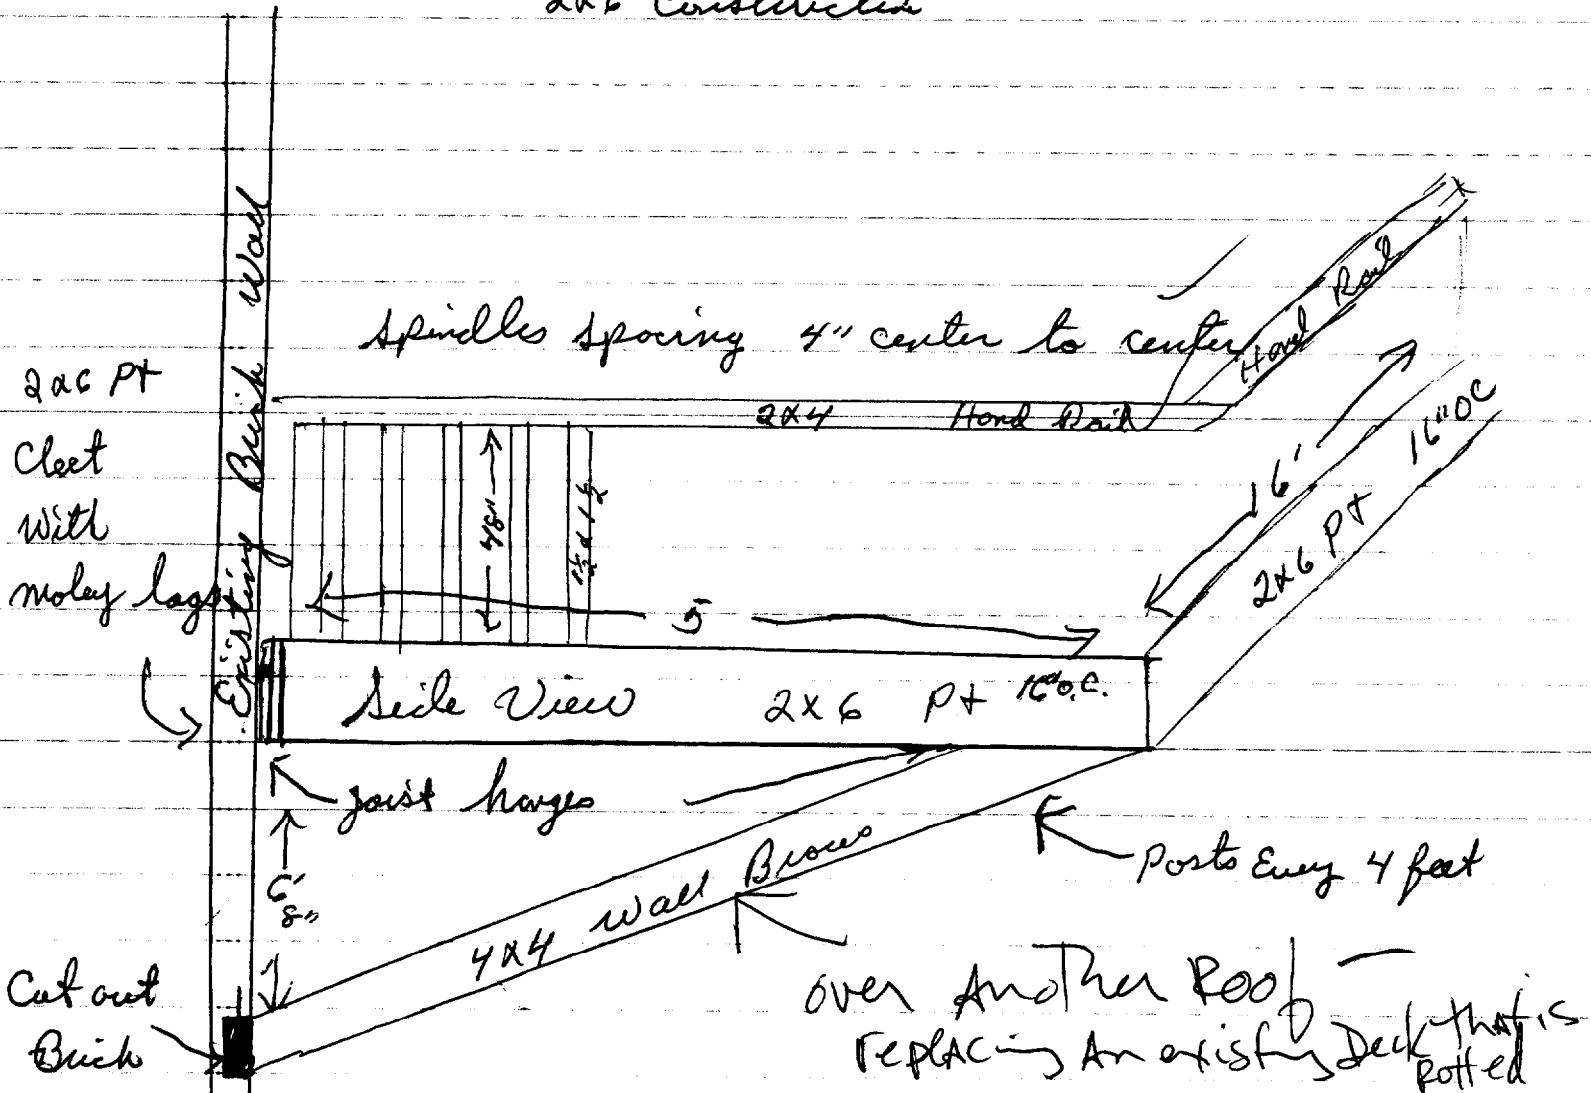 2x6 Construction
Spindles spacing 4" center to center
Hand Rail
2x4 Hand Rail
2x6 Pt
Cleet
With
moley lags
Existing Brick Wall
48"
1½ x 1½
5'
16'
2x6 Pt 16" OC
Side View 2x6 Pt 16" O.C.
joist hanges
6'
8"
4x4 Wall Braces
Posts Every 4 feet
Cut out
Brick
over Another Roof —
replacing An existing Deck that is
Rotted